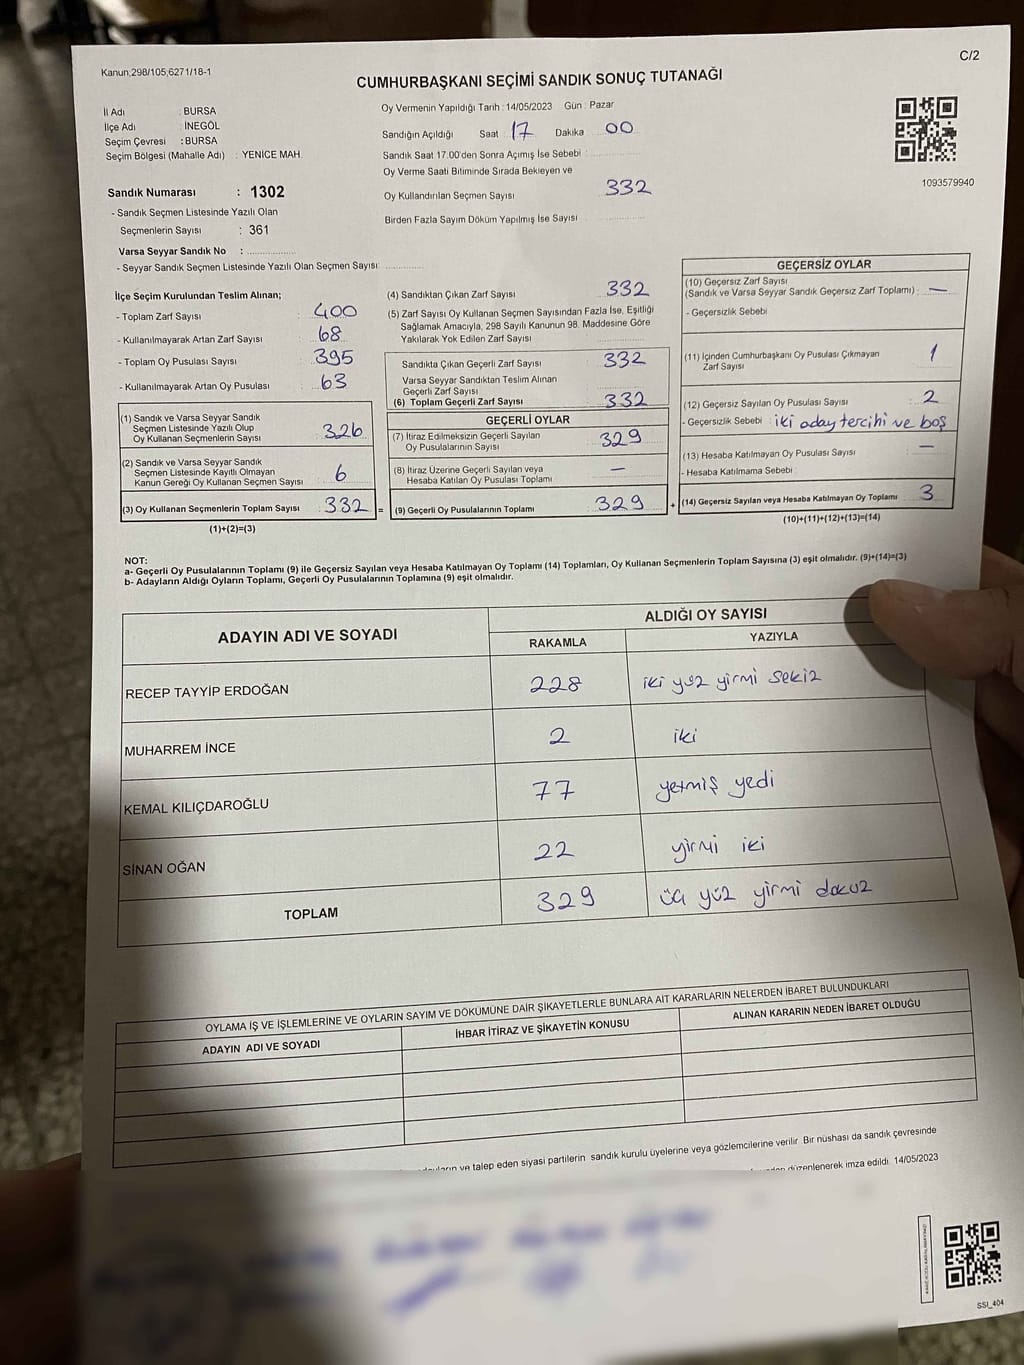 Kanun;298/105,6271/18-1
C/2
CUMHURBAŞKANI SEÇİMİ SANDIK SONUÇ TUTANAĞI
İl Adı : BURSA
İlçe Adı : İNEGÖL
Seçim Çevresi : BURSA
Seçim Bölgesi (Mahalle Adı) : YENİCE MAH.
Sandık Numarası : 1302
- Sandık Seçmen Listesinde Yazılı Olan
Seçmenlerin Sayısı : 361
Varsa Seyyar Sandık No :
- Seyyar Sandık Seçmen Listesinde Yazılı Olan Seçmen Sayısı:
Oy Vermenin Yapıldığı Tarih : 14/05/2023 Gün : Pazar
Sandığın Açıldığı Saat 17 Dakika 00
Sandık Saat 17.00'den Sonra Açımış İse Sebebi :
Oy Verme Saati Bitiminde Sırada Bekleyen ve
Oy Kullandırılan Seçmen Sayısı 332
Birden Fazla Sayım Döküm Yapılmış İse Sayısı
1093579940
İlçe Seçim Kurulundan Teslim Alınan;
- Toplam Zarf Sayısı : 400
- Kullanılmayarak Artan Zarf Sayısı : 68
- Toplam Oy Pusulası Sayısı : 395
- Kullanılmayarak Artan Oy Pusulası : 63
(1) Sandık ve Varsa Seyyar Sandık
Seçmen Listesinde Yazılı Olup
Oy Kullanan Seçmenlerin Sayısı : 326
(2) Sandık ve Varsa Seyyar Sandık
Seçmen Listesinde Kayıtlı Olmayan
Kanun Gereği Oy Kullanan Seçmen Sayısı : 6
(3) Oy Kullanan Seçmenlerin Toplam Sayısı : 332 =
(1)+(2)=(3)
(4) Sandıktan Çıkan Zarf Sayısı : 332
(5) Zarf Sayısı Oy Kullanan Seçmen Sayısından Fazla İse, Eşitliği
Sağlamak Amacıyla, 298 Sayılı Kanunun 98. Maddesine Göre
Yakılarak Yok Edilen Zarf Sayısı
Sandıkta Çıkan Geçerli Zarf Sayısı : 332
Varsa Seyyar Sandıktan Teslim Alınan
Geçerli Zarf Sayısı
(6) Toplam Geçerli Zarf Sayısı : 332
GEÇERLİ OYLAR
(7) İtiraz Edilmeksizin Geçerli Sayılan
Oy Pusulalarının Sayısı : 329
(8) İtiraz Üzerine Geçerli Sayılan veya
Hesaba Katılan Oy Pusulası Toplamı : —
(9) Geçerli Oy Pusulalarının Toplamı : 329 +
GEÇERSİZ OYLAR
(10) Geçersiz Zarf Sayısı
(Sandık ve Varsa Seyyar Sandık Geçersiz Zarf Toplamı) : —
- Geçersizlik Sebebi
(11) İçinden Cumhurbaşkanı Oy Pusulası Çıkmayan
Zarf Sayısı 1
(12) Geçersiz Sayılan Oy Pusulası Sayısı : 2
- Geçersizlik Sebebi : iki aday tercihi ve boş
(13) Hesaba Katılmayan Oy Pusulası Sayısı : —
- Hesaba Katılmama Sebebi :
(14) Geçersiz Sayılan veya Hesaba Katılmayan Oy Toplamı : 3
(10)+(11)+(12)+(13)=(14)
NOT:
a- Geçerli Oy Pusulalarının Toplamı (9) ile Geçersiz Sayılan veya Hesaba Katılmayan Oy Toplamı (14) Toplamları, Oy Kullanan Seçmenlerin Toplam Sayısına (3) eşit olmalıdır. (9)+(14)=(3)
b- Adayların Aldığı Oyların Toplamı, Geçerli Oy Pusulalarının Toplamına (9) eşit olmalıdır.
ADAYIN ADI VE SOYADI
ALDIĞI OY SAYISI
RAKAMLA YAZIYLA
RECEP TAYYİP ERDOĞAN 228 iki yüz yirmi sekiz
MUHARREM İNCE 2 iki
KEMAL KILIÇDAROĞLU 77 yetmiş yedi
SİNAN OĞAN 22 yirmi iki
TOPLAM 329 üç yüz yirmi dokuz
OYLAMA İŞ VE İŞLEMLERİNE VE OYLARIN SAYIM VE DÖKÜMÜNE DAİR ŞİKAYETLERLE BUNLARA AİT KARARLARIN NELERDEN İBARET BULUNDUKLARI
ADAYIN ADI VE SOYADI İHBAR İTİRAZ VE ŞİKAYETİN KONUSU ALINAN KARARIN NEDEN İBARET OLDUĞU
ve talep eden siyasi partilerin sandık kurulu üyelerine veya gözlemcilerine verilir. Bir nüshası da sandık çevresinde
düzenlenerek imza edildi. 14/05/2023
SSI_404